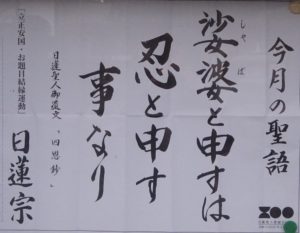 今月の聖語
沙婆と申すは
しゃば
忍と申す
事なり
日蓮聖人御遺文 「四恩鈔」
「立正安国・お題目結縁運動」
日蓮宗